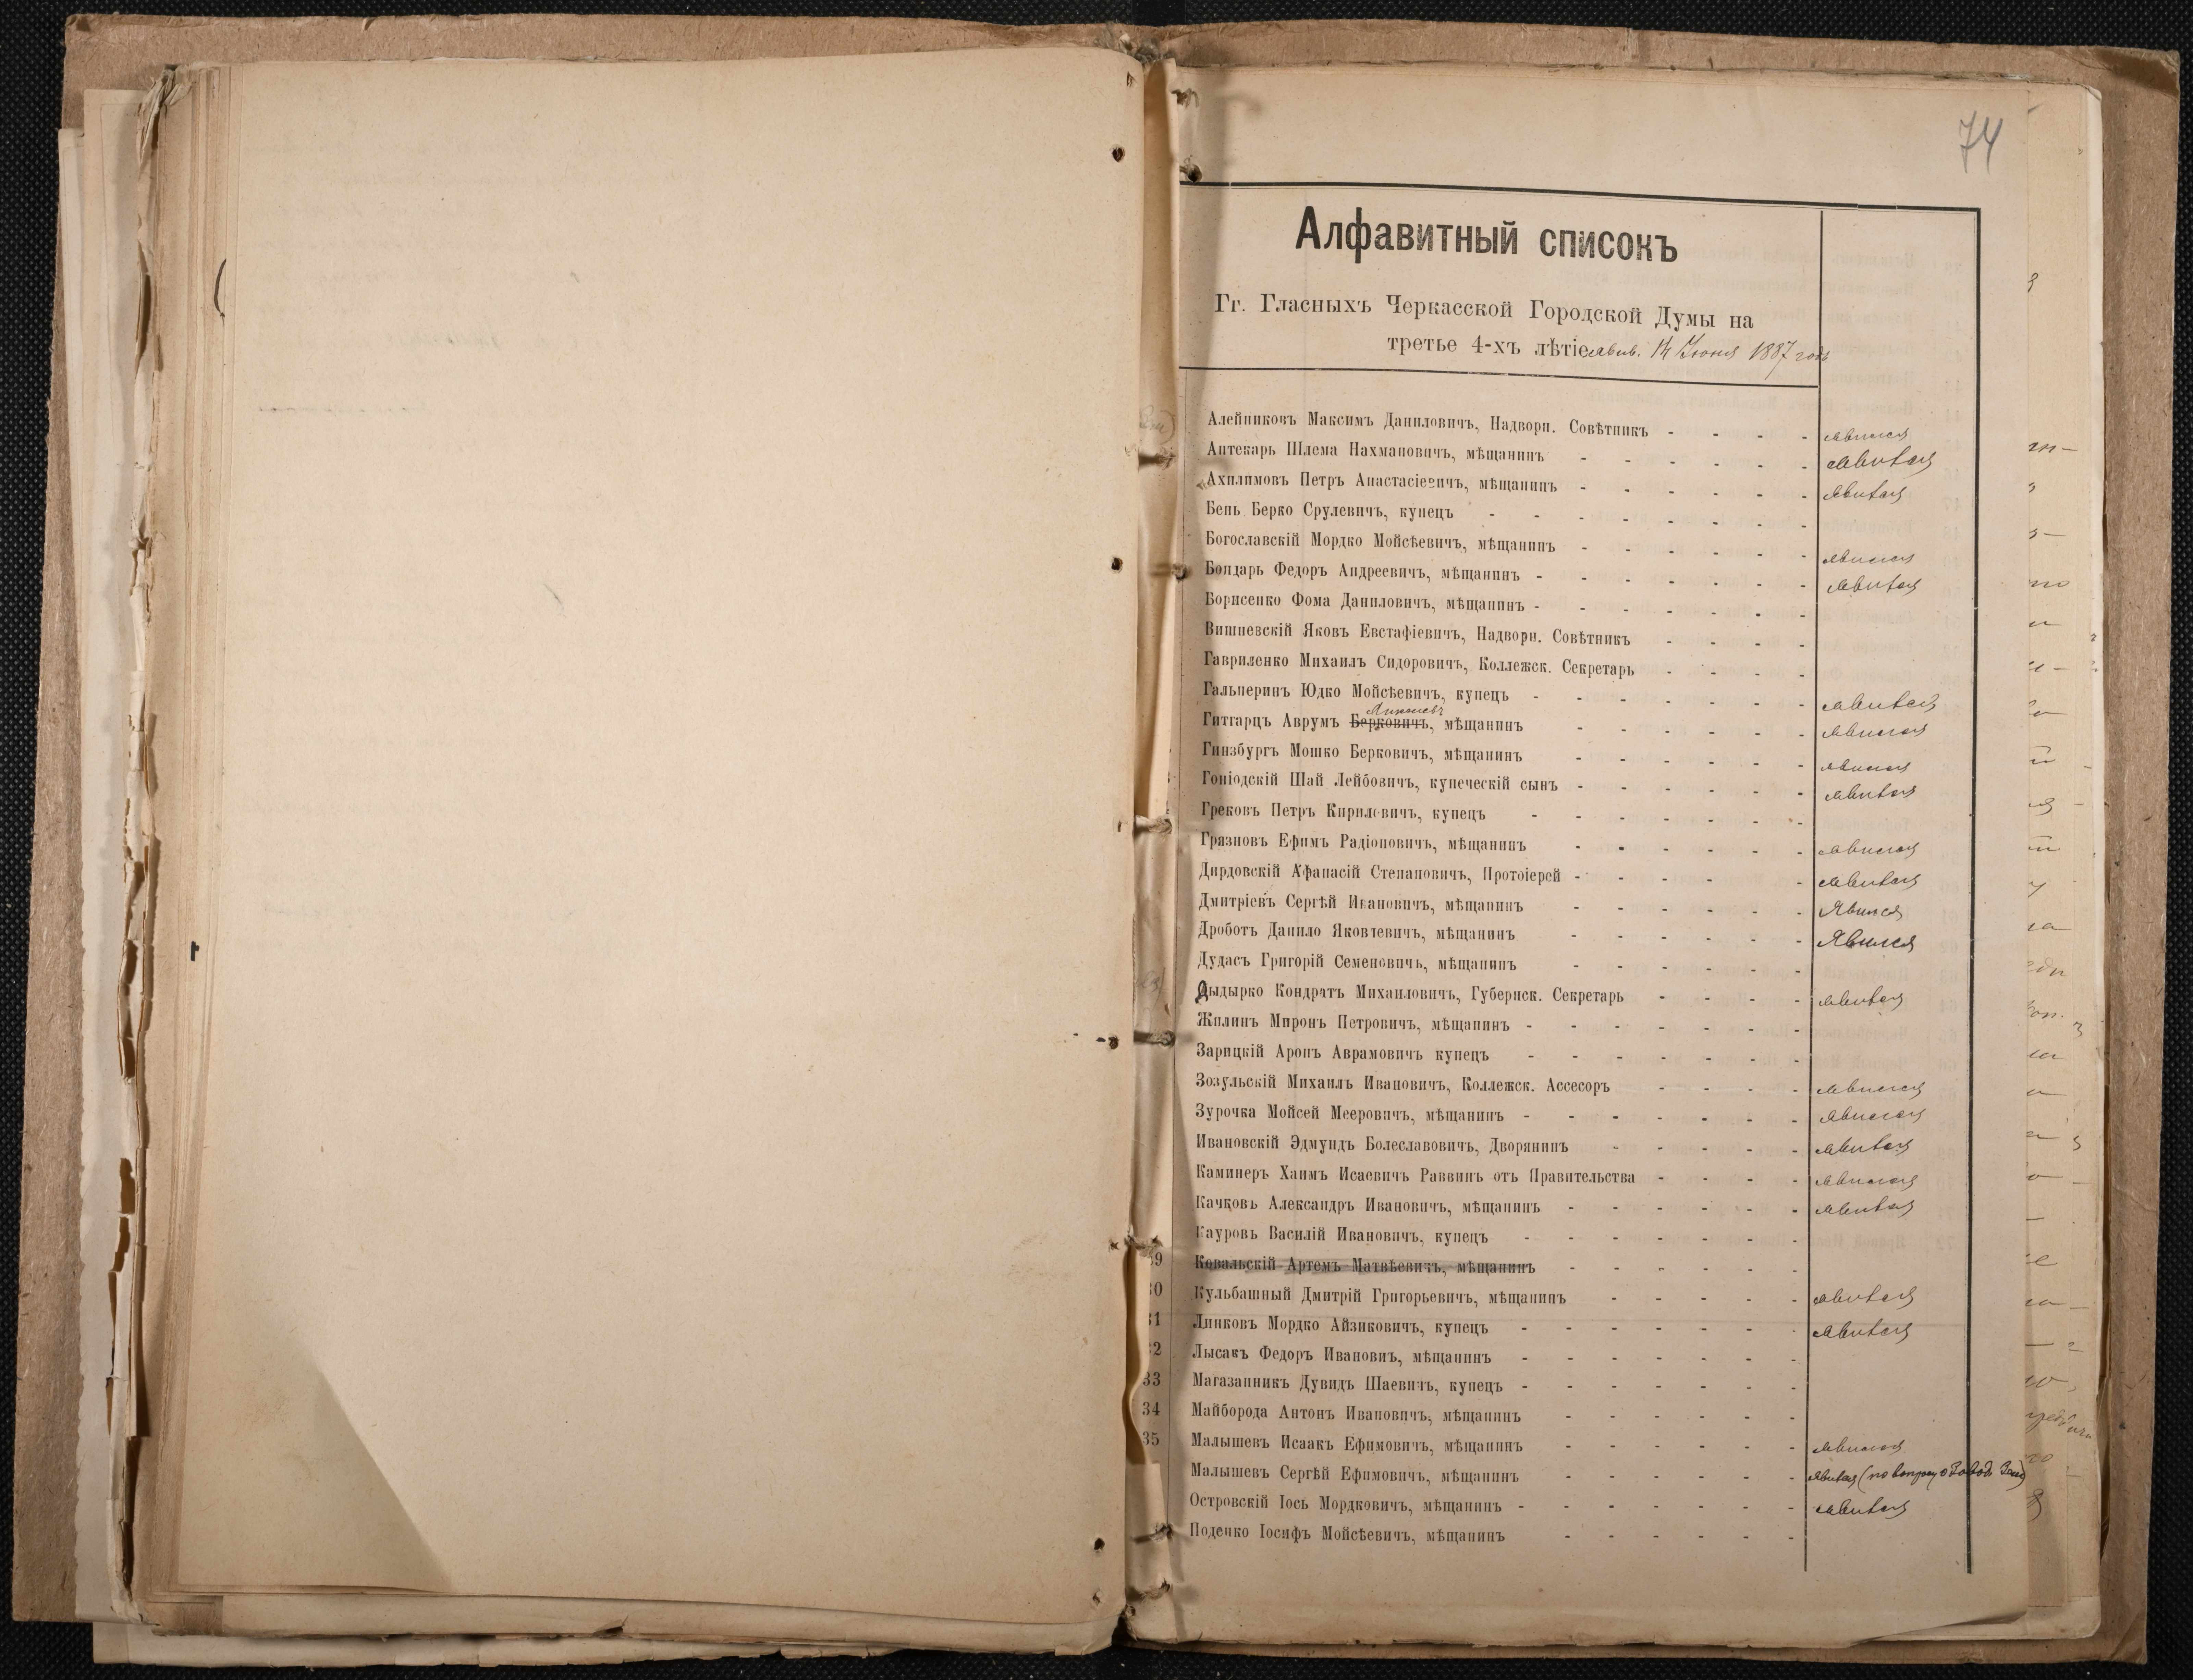 74
Алфавитный списокъ
Гг. Гласныхъ Черкасской Городской Думы на
третье 4-хъ лѣтіе явив. 14 Июня 1887 года
Алейниковъ Максимъ Даниловичъ, Надворн. Совѣтникъ - - - - явился
Аптекарь Шлема Нахмановичъ, мѣщанинъ - - - - - - явился
Ахилимовъ Петръ Анастасіевичъ, мѣщанинъ - - - - - - явился
Бень Берко Срулевичъ, купецъ - - - - - - - -
Богославскій Мордко Мойсѣевичъ, мѣщанинъ - - - - - - явился
Бондарь Федоръ Андреевичъ, мѣщанинъ - - - - - - - явился
Борисенко Фома Даниловичъ, мѣщанинъ - - - - - - -
Вишневскій Яковъ Евстафіевичъ, Надворн. Совѣтникъ - - - -
Гавриленко Михаилъ Сидоровичъ, Коллежск. Секретарь - - - -
Гальперинъ Юдко Мойсѣевичъ, купецъ - - - - - - - явился
Гитгарцъ Аврумъ Беркович, мѣщанинъ - - - - - - явился
Гинзбургъ Мошко Берковичъ, мѣщанинъ - - - - - - явился
Гоніодскій Шай Лейбовичъ, купеческій сынъ - - - - - - явился
Грековъ Петръ Кириловичъ, купецъ - - - - - - -
Грязновъ Ефимъ Радіоновичъ, мѣщанинъ - - - - - - явился
Дирдовскій Афанасій Степановичъ, Протоіерей - - - - - явился
Дмитріевъ Сергѣй Ивановичъ, мѣщанинъ - - - - - - Явился
Дроботъ Данило Яковлевичъ, мѣщанинъ - - - - - - Явился
Дудасъ Григорій Семеновичъ, мѣщанинъ - - - - - -
Дыдырко Кондратъ Михаиловичъ, Губернск. Секретарь - - - - явился
Жилинъ Миронъ Петровичъ, мѣщанинъ - - - - - - -
Зарицкій Аронъ Аврамовичъ купецъ - - - - - - -
Зозульскій Михаилъ Ивановичъ, Коллежск. Ассесоръ - - - - явился
Зурочка Мойсей Мееровичъ, мѣщанинъ - - - - - - - явился
Ивановскій Эдмундъ Болеславовичъ, Дворянинъ - - - - - явился
Каминеръ Хаимъ Исаевичъ Раввинъ отъ Правительства - - - - явился
Качковъ Александръ Ивановичъ, мѣщанинъ - - - - - - явился
Кауровъ Василій Ивановичъ, купецъ - - - - - - -
9 Ковальскій Артемъ Матвѣевичъ, мѣщанинъ - - - - - -
30 Кульбашный Дмитрій Григорьевичъ, мѣщанинъ - - - - - явился
31 Линковъ Мордко Айзиковичъ, купецъ - - - - - - - явился
32 Лысакъ Федоръ Ивановиъ, мѣщанинъ - - - - - - -
33 Магазанникъ Дувидъ Шаевичъ, купецъ - - - - - - -
34 Майборода Антонъ Ивановичъ, мѣщанинъ - - - - - -
35 Малышевъ Исаакъ Ефимовичъ, мѣщанинъ - - - - - - явился
Малышевъ Сергѣй Ефимовичъ, мѣщанинъ - - - - - - явился (по вопросу о
Островскій Іось Мордковичъ, мѣщанинъ - - - - - - - явился
Поденко Іосифъ Мойсѣевичъ, мѣщанинъ - - - - - -